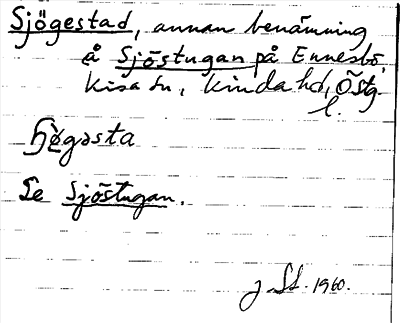 Sjögestad, annan benämning
å Sjöstugan på Ennesbö,
Kisa sn, Kinda hd, Östg.
l.
Se Sjöstugan.
1960.